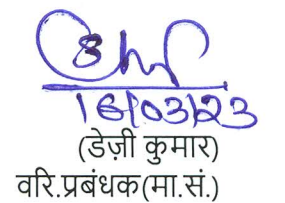 16/03/23
(डेज़ी कुमार)
वरि.प्रबंधक(मा.सं.)